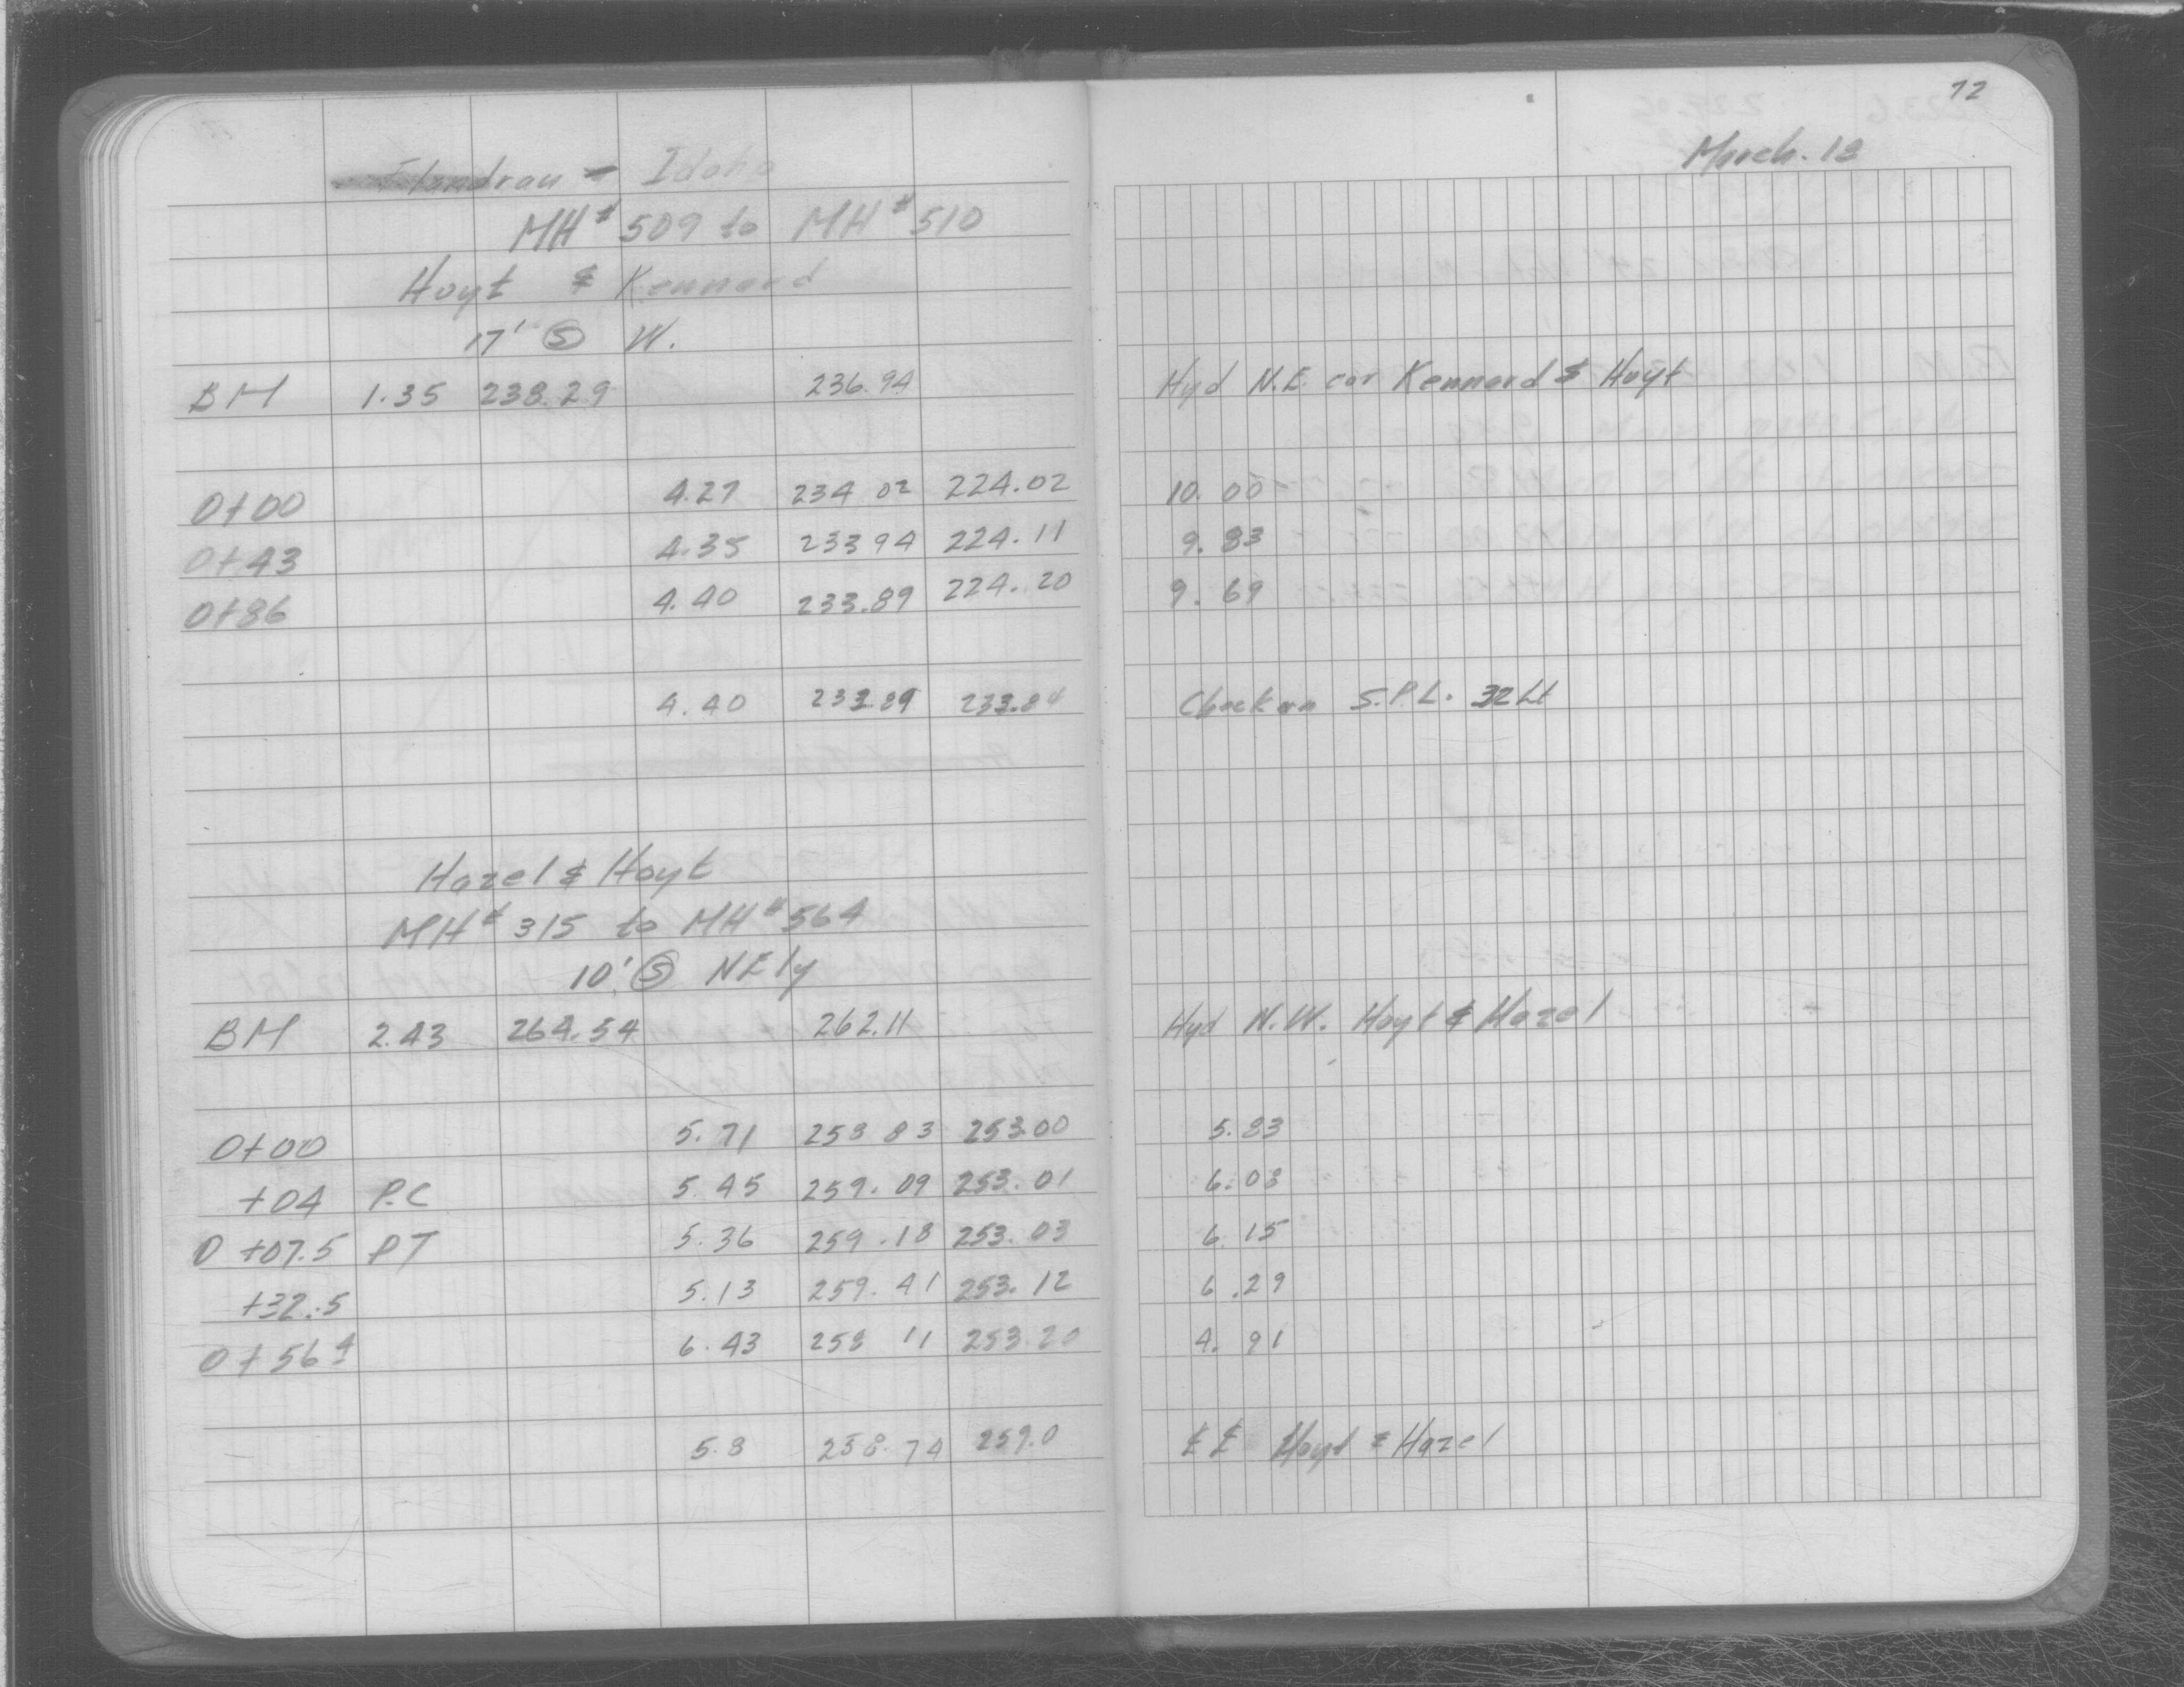 72
March. 13
Flandrau - Idaho
MH# 509 to MH# 510
Hoyt & Kennard
17' Ⓢ W.
BM 1.35 238.29 236.94 Hyd N.E. cor Kennard & Hoyt
0+00 4.27 234 02 224.02 10. 00
0+43 4.35 233 94 224.11 9. 83
0+86 4.40 233.89 224.20 9. 69
4.40 233.89 233.84 Check on S.P.L. 32 Lt
Hazel & Hoyt
MH# 315 to MH# 564
10' Ⓢ NEly
BM 2.43 264.54 262.11 Hyd N.W. Hoyt & Hazel
0+00 5.71 258 83 253.00 5.83
+04 P.C 5.45 259.09 253.01 6.08
0 +07.5 PT 5.36 259.18 253.03 6.15
+32.5 5.13 259.41 253.12 6.29
0+56 4 6.43 258 11 253.20 4.91
5.8 258.74 259.0 ℄ ℄ Hoyt & Hazel